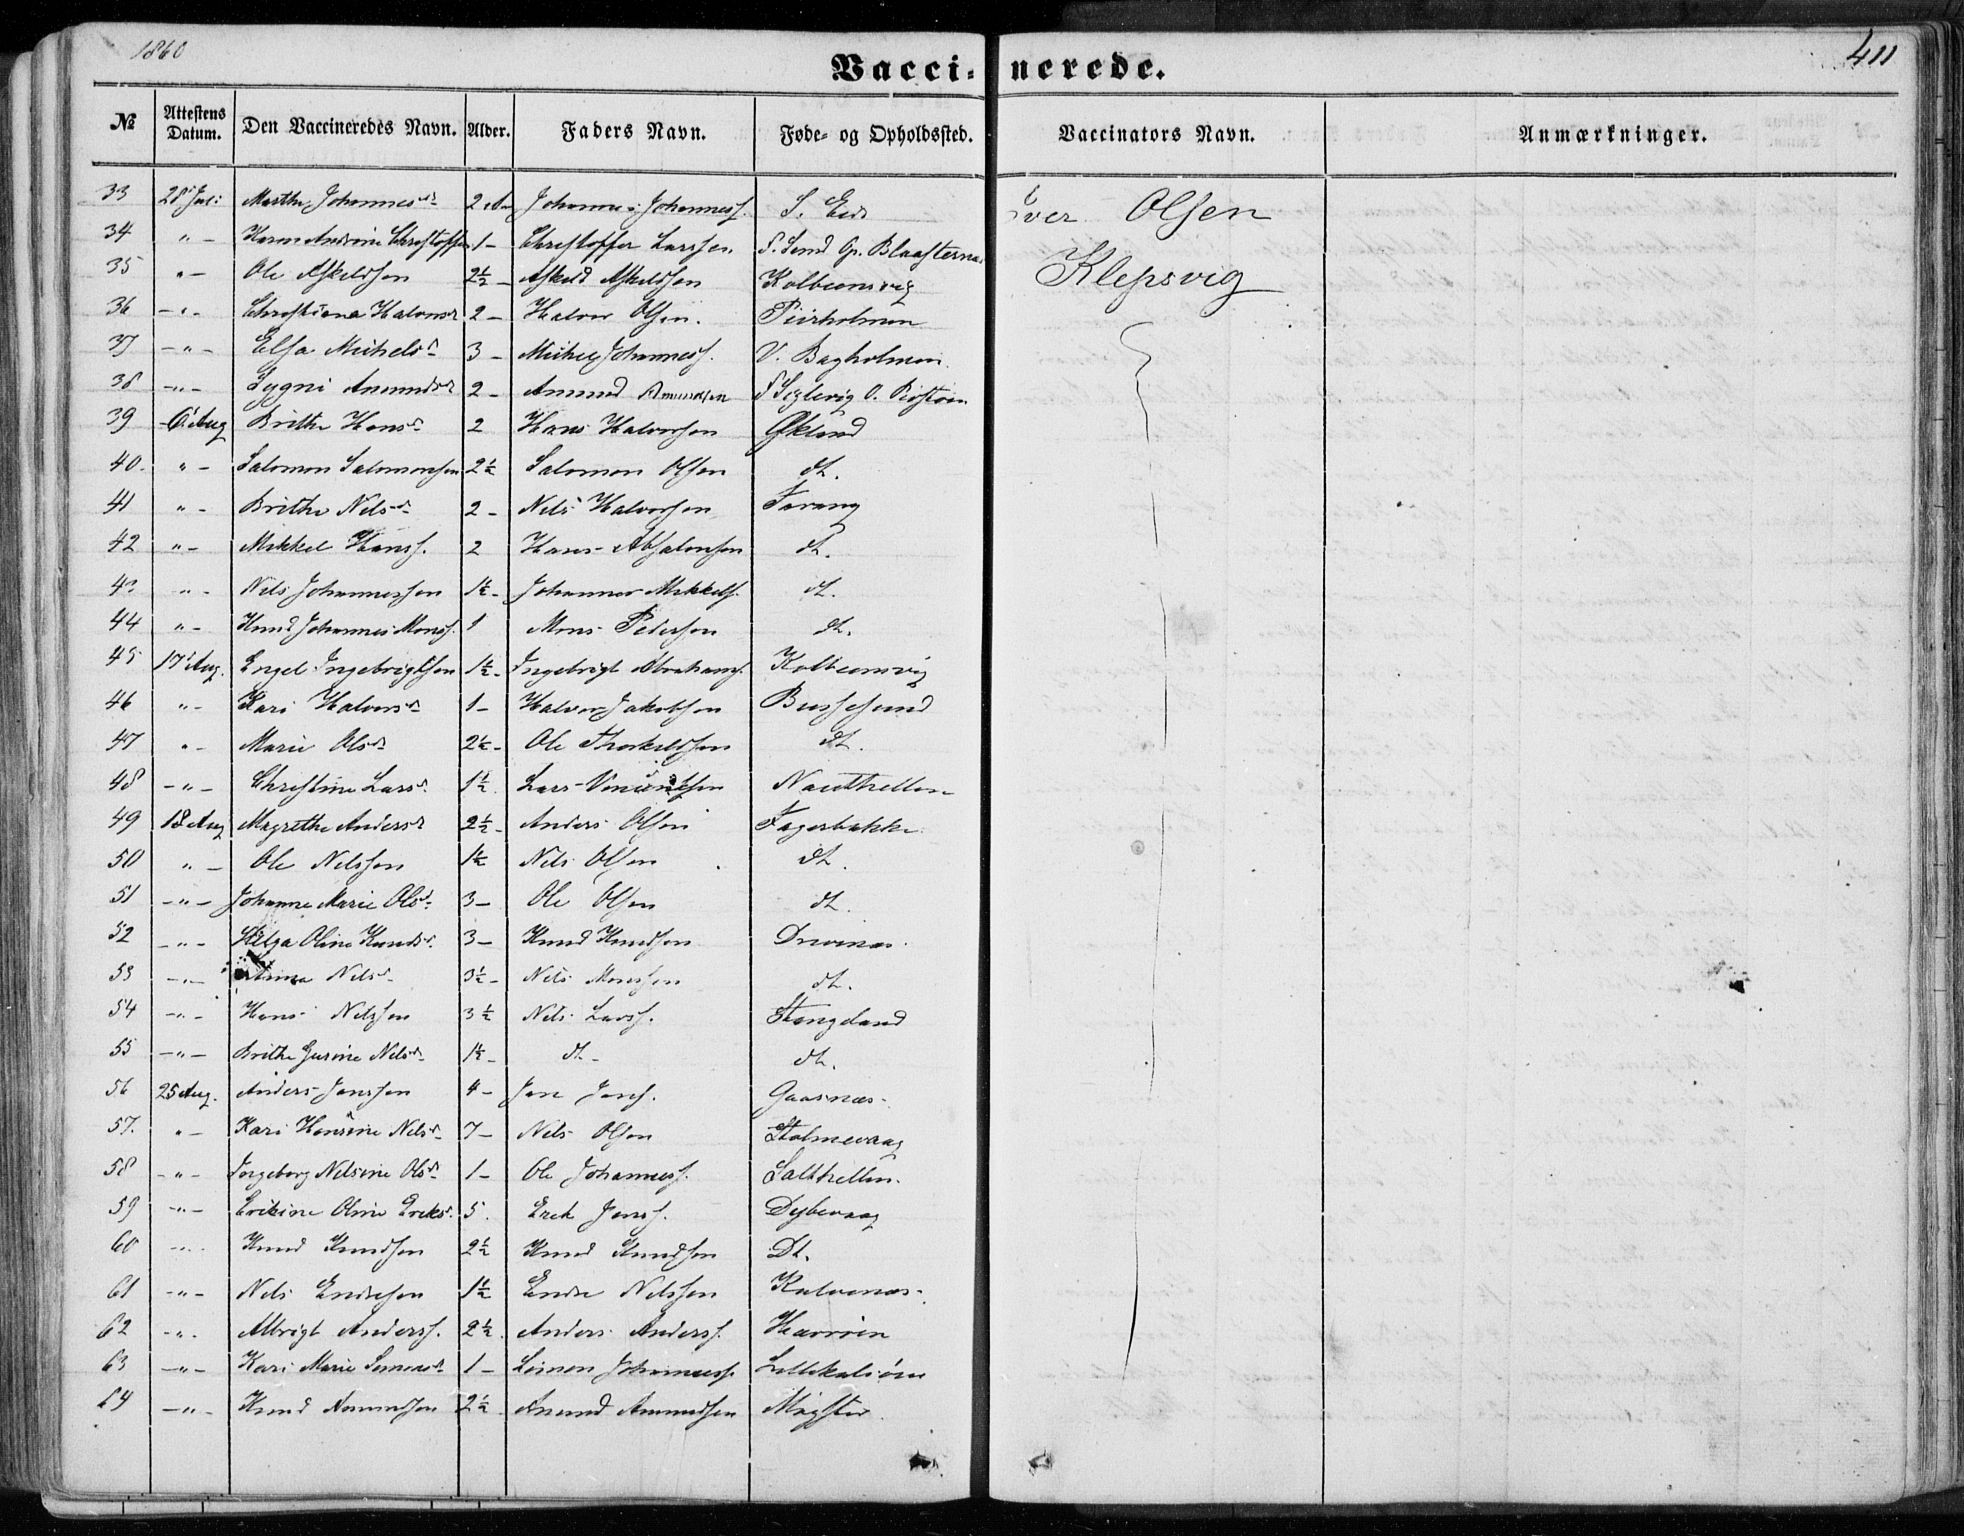 1860
Vaccinerede.
411
№ Attestens Datum. Den Vaccineredes Navn. Alder. Faders Navn. Føde- og Opholdssted. Vaccinators Navn. Anmærkninger.
33 28 Jul: Marthe Johannesd 2 Johannes Johanness. S. Eid Iver Olsen
34 " - Christoffer 1 - Christoffer Larssen Klepsvig
35 " - Ole Askeldsen 2½ - Askeld Askeldsen Kolbeensvig
36 - " - Christiana Halvorsd 2 - Halvor Olsen.
37 - " - Elsa Michelsd 3 - Johanness. V. Bagholmen
38 - " - Amundsd 2 - Amund Amundsen
39 6 Aug Brithe Hansd 2 Hans Halvorsen Økland
40. " - Salomon Salomonsen 2½ Salomon Olsen dt.
41 " - Brithe Nelsd 2 - Nels Halvorsen Torang
42 " - Mikkel Hanss. 2 Hans Absalonsen dt.
43 " - Nils Johannessen 1½ - Johannes Mikkels. dt.
44 " - Knud Johannes Monss. 1 Mons Pedersen dt.
45 17 Aug. Engel Ingebrigtsen 1½ - Ingebrigt Abrahams. Kolbeensvig
46 " - Kari Halvorsd 1 - Halvor Jakobsen Bussesund
47 " - Marie Olsd 2½ - Ole Thorkeldsen dt.
48 - " - Christine Larsd 1½ Lars Nauthellen
49 18 Aug Magrethe Andersd 2½ - Anders Olsen Fagerbakke
50 " - Ole Nelssen 1½ Nels Olsen dt.
51 - " - Johanne Marie Olsd 3 - Ole Olsen dt.
52 - " - Helga Oline Knudsd 3 - Knud Knudsen Drivenes.
53 - " - Nelsd 3½ - Nels Monssen dt.
54 - " - Hans Nelssen 3½ Nels Larss. Stangeland
55 - " - Brithe Gurine Nelsd 1½ - dt - dt.
56 25 Aug. Anders Janssen 4 - Jan Janss. Gaasnæs.
57. " - Kari Hansine Nelsd 7 - Nels Olsen Stolmevaag
58 - " - Ingeborg Nelsine Olsd 1 - Ole Johanness. Salthellen.
59 - " - Erikine Oline Ereksd. 5. Erek Janss. Dybevaag
60 - " - Knud Knudsen 2½ Knud Knudsen Dt.
61 - " - Nels Endresen 1½ Endre Nelssen Kalvenæs.
62 - " - Albrigt Anderss. 2½ Anders Anderss. Havrøen
63 - " - Kari Marie Simonsd 1 - Simon Johanness. Lillekalsøen
64 - " - Knud Amundsen 2½ Amund Amundsen Møgster